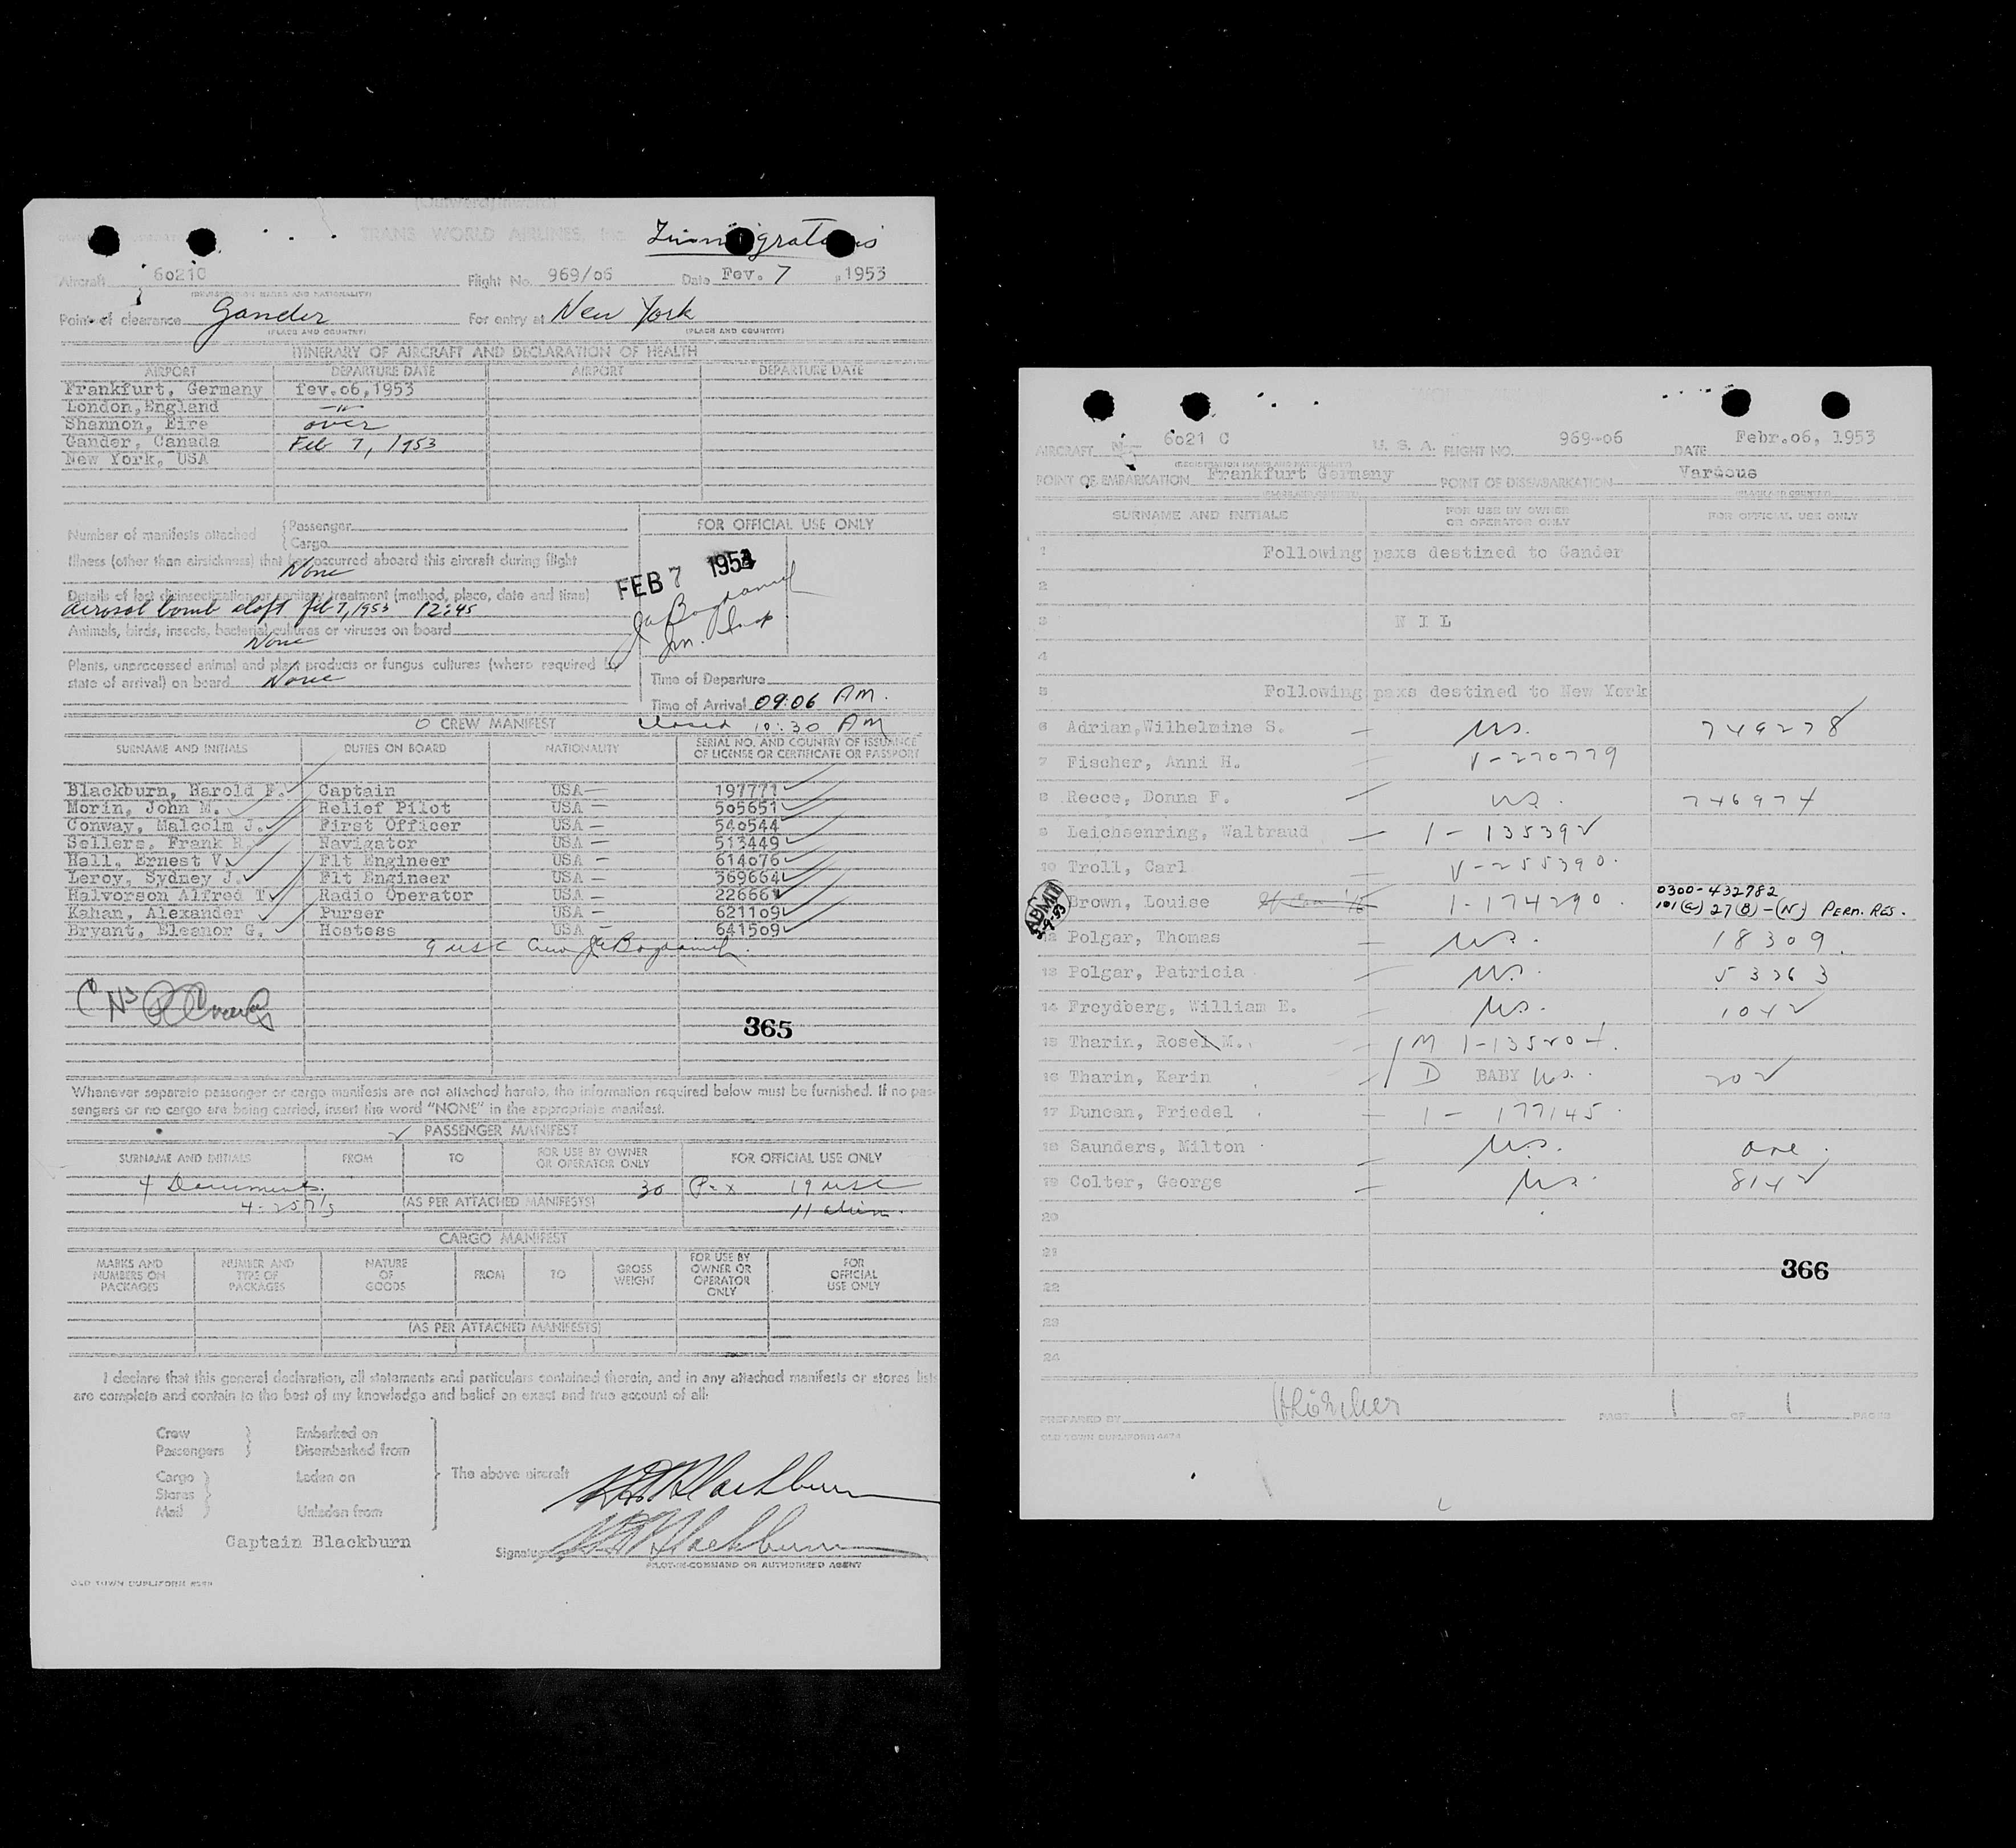 (Outward/Inward)
TRANS WORLD AIRLINES, Inc.
Immigration
Aircraft 6021C Flight No. 969/06 Date Fev. 7, 1953
(REGISTRATION MARKS AND NATIONALITY)
Point of clearance Gander For entry at New York
(PLACE AND COUNTRY) (PLACE AND COUNTRY)
ITINERARY OF AIRCRAFT AND DECLARATION OF HEALTH
AIRPORT DEPARTURE DATE AIRPORT DEPARTURE DATE
Frankfurt, Germany fev.06,1953
London,England —"—
Shannon, Eire over
Gander, Canada Feb 7, 1953
New York, USA
Number of manifests attached {Passenger
{Cargo
FOR OFFICIAL USE ONLY
Illness (other than airsickness) that has occurred aboard this aircraft during flight
None
FEB 7 1953
Details of last disinsectization or sanitary treatment (method, place, date and time)
aerosol bomb aloft feb 7, 1953 12:45
Animals, birds, insects, bacterial cultures or viruses on board
None
Plants, unprocessed animal and plant products or fungus cultures (where required by
state of arrival) on board None
Time of Departure
Time of Arrival 09:06 AM.
Closed 10:30 AM
CREW MANIFEST
SURNAME AND INITIALS DUTIES ON BOARD NATIONALITY SERIAL NO. AND COUNTRY OF ISSUANCE
OF LICENSE OR CERTIFICATE OR PASSPORT
Blackburn, Harold F. Captain USA 197771
Morin, John M. Relief Pilot USA 505651
Conway, Malcolm J. First Officer USA 540544
Sellers, Frank R. Navigator USA 513449
Hall, Ernest V. Flt Engineer USA 614076
Leroy, Sydney J. Flt Engineer USA 369664
Halvorson Alfred T. Radio Operator USA 22666
Kahan, Alexander Purser USA 621109
Bryant, Eleanor G. Hostess USA 641509
9 USC Crew
365
Whenever separate passenger or cargo manifests are not attached hereto, the information required below must be furnished. If no pas-
sengers or no cargo are being carried, insert the word "NONE" in the appropriate manifest.
PASSENGER MANIFEST
SURNAME AND INITIALS FROM TO FOR USE BY OWNER
OR OPERATOR ONLY FOR OFFICIAL USE ONLY
4 Documents 30 Pax 19 USC
4-257's (AS PER ATTACHED MANIFESTS) 11 alien
CARGO MANIFEST
MARKS AND
NUMBERS ON
PACKAGES NUMBER AND
TYPE OF
PACKAGES NATURE
OF
GOODS FROM TO GROSS
WEIGHT FOR USE BY
OWNER OR
OPERATOR
ONLY FOR
OFFICIAL
USE ONLY
(AS PER ATTACHED MANIFESTS)
I declare that this general declaration, all statements and particulars contained therein, and in any attached manifests or stores lists
are complete and contain to the best of my knowledge and belief an exact and true account of all:
Crew } Embarked on
Passengers } Disembarked from
Cargo } Laden on The above aircraft
Stores }
Mail } Unladen from
HFBlackburn
Captain Blackburn
Signature HFBlackburn
PILOT-IN-COMMAND OR AUTHORIZED AGENT
OLD TOWN DUPLIFORM
AIRCRAFT N- 6021 C U. S. A. FLIGHT NO. 969-06 DATE Febr.06, 1953
(REGISTRATION MARKS AND NATIONALITY)
POINT OF EMBARKATION Frankfurt Germany POINT OF DISEMBARKATION Various
(PLACE AND COUNTRY) (PLACE AND COUNTRY)
SURNAME AND INITIALS FOR USE BY OWNER
OR OPERATOR ONLY FOR OFFICIAL USE ONLY
1 Following paxs destined to Gander
2
3 N I L
4
5 Following paxs destined to New York
6 Adrian,Wilhelmine S. — US. 749278
7 Fischer, Anni H. — V-270779
8 Reece, Donna F. — US. 746974
9 Leichsenring, Waltraud — I-135392
10 Troll, Carl — V-255390.
ADMIT
Brown, Louise I-174290. 0300-432782
101(c) 27(B)-(N) PERM. RES.
12 Polgar, Thomas — US. 18309.
13 Polgar, Patricia — US. 53363
14 Freydberg, William E. — US. 1042
15 Tharin, Rosel M. — M I-135204.
16 Tharin, Karin — D BABY US. 202
17 Duncan, Friedel — I - 177145.
18 Saunders, Milton — US. one.
19 Colter, George — US. 8142
20
21
366
22
23
24
PREPARED BY PAGE 1 OF 1 PAGES
OLD TOWN DUPLIFORM 4474